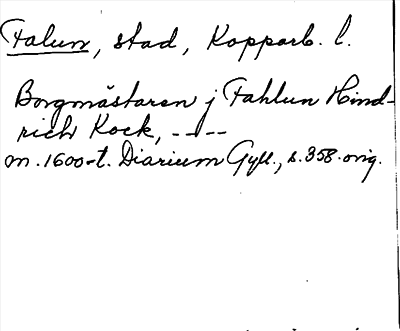 Falun, stad, Kopparb. l.
Borgmästaren j Fahlun Hind-
rich Kock, ----
m. 1600-t. Diarium Gyll., s. 358. orig.